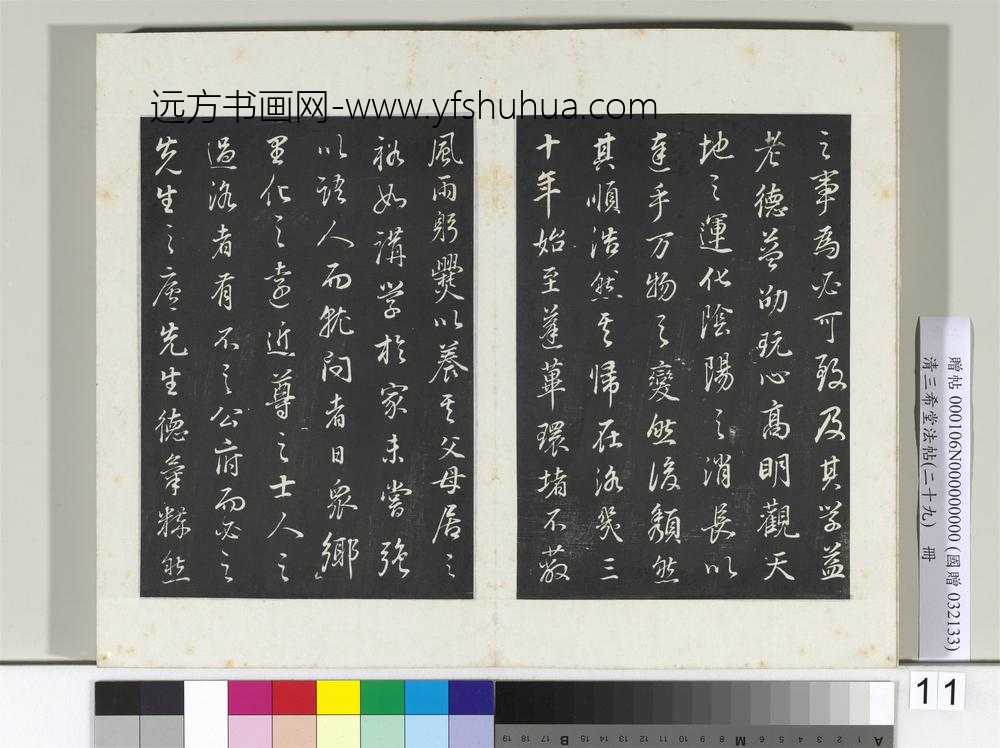 远方书画网-www.yfshuhua.com
之事為必可致及其学益
老德益邵玩心高明觀天
地之運化陰陽之消長以
達乎万物之變然後頹然
其順浩然其歸在洛幾三
十年始至蓬蓽環堵不蔽
風雨躬爨以養其父母居之
裕如講学於家未嘗強
以語人而就問者日眾鄉
里化之遠近尊之士人之
過洛者有不之公府而必之
先生之廬先生德氣粹然
贈帖 000106N000000000 (國贈 032133)
清三希堂法帖(二十九) 冊
11
A 1 2 3 4 5 6 M 8 9 10 11 12 13 14 15 B 17 18 19